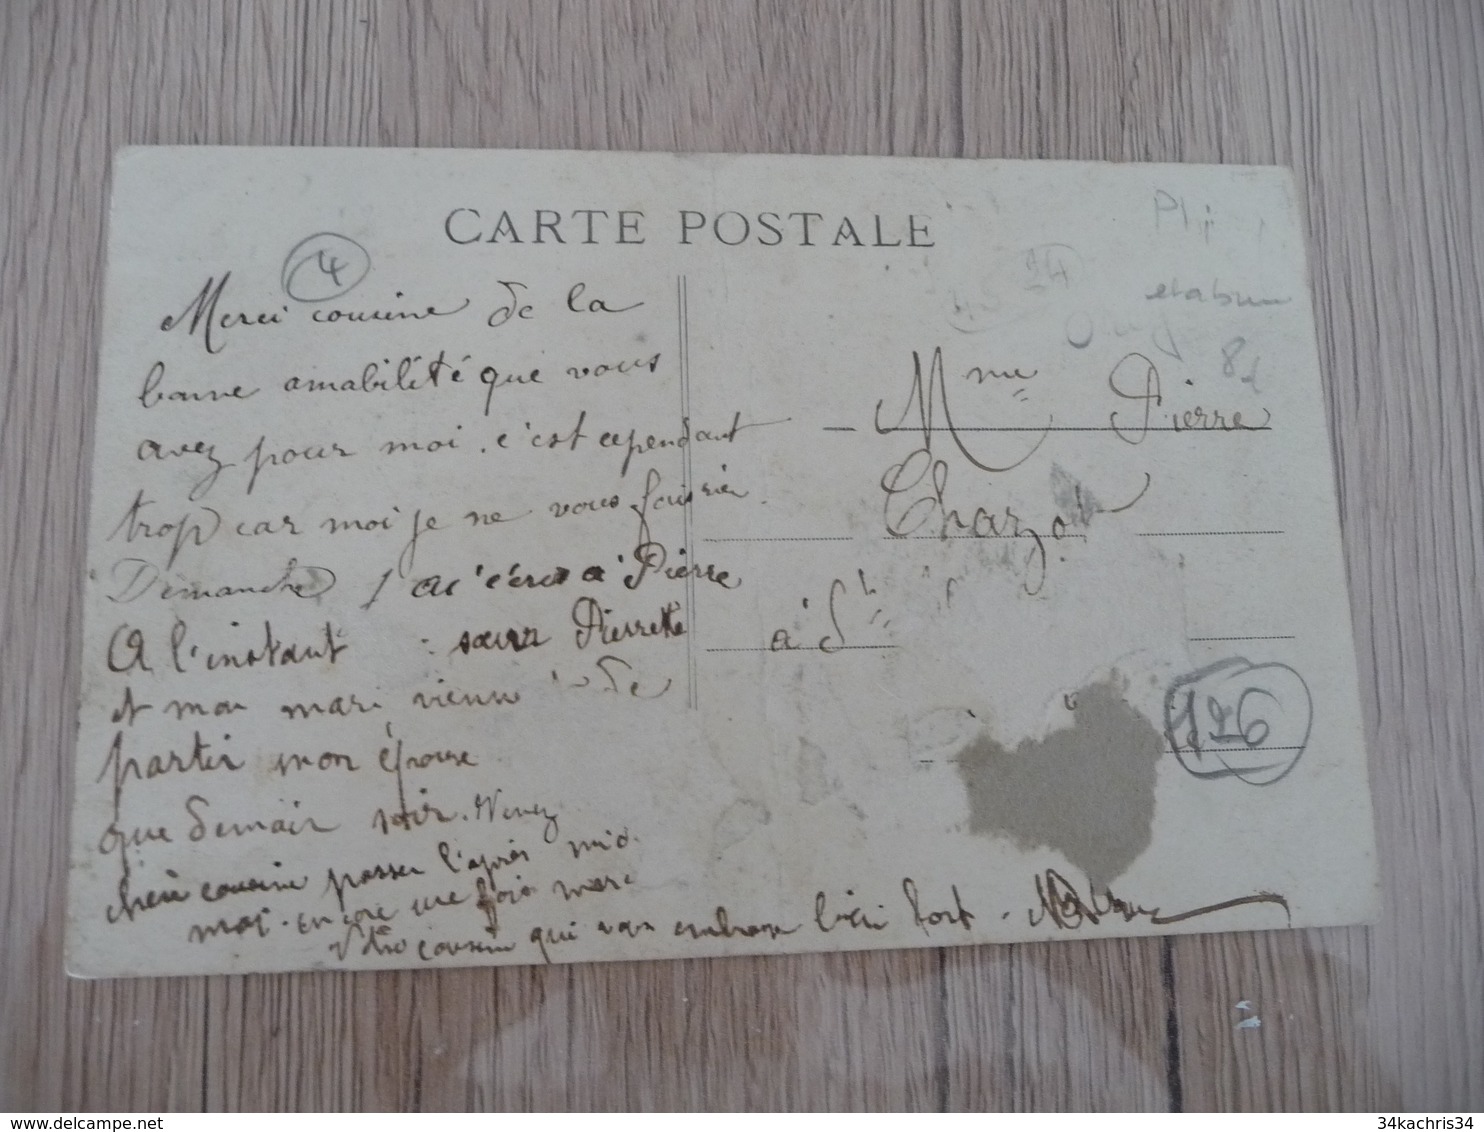 CARTE POSTALE
4
Merci cousine de la
bonne amabilité que vous
avez pour moi. c'est cependant
trop car moi je ne vous fais rien.
Dimanche j'ai écris à Pierre
A l'instant sœur Pierrette
et mon mari vienne de
partir mon épouse
que demain soir. Venez
chère cousine passer l'après mid
moi. encore une fois merci
Votre cousine qui vous embrasse bien fort.
Mme Pierre
à St
24
8
126
34kachris34